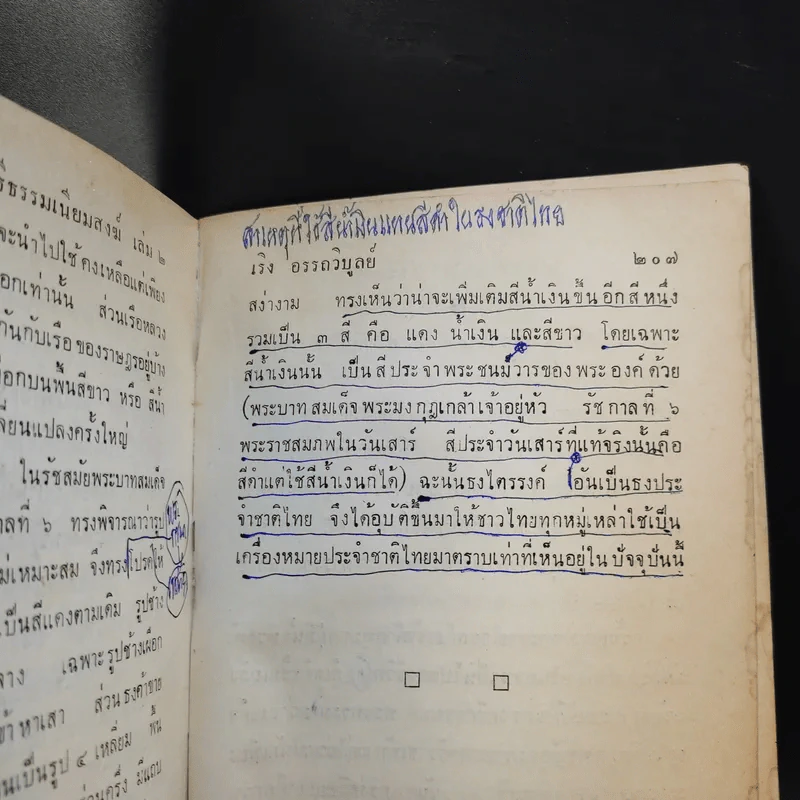 ธรรมเนียมสงฆ์ เล่ม ๒
จะนำไปใช้ คงเหลือแต่เพียง
อกเท่านั้น ส่วนเรือหลวง
กันกับเรือของราษฎรอยู่บ้าง
ือกบนพื้นสีขาว หรือ สีน้ำ
ลี่ยนแปลงครั้งใหญ่
ในรัชสมัยพระบาทสมเด็จ
าลที่ ๖ ทรงพิจารณาว่ารูป
ม่เหมาะสม จึงทรงโปรดให้
เป็นสีแดงตามเดิม รูปช้าง
ลาง เฉพาะรูปช้างเผือก
ข้าหาเสา ส่วนธงค้าขาย
นเป็นรูป ๔ เหลี่ยม พื้น
ส่วนครึ่ง มีแถบ
สาเหตุที่ใช้สีน้ำเงินแทนสีดำในธงชาติไทย
เริง อรรถวิบูลย์ ๒๐๗
สง่างาม ทรงเห็นว่าน่าจะเพิ่มเติมสีน้ำเงินขึ้นอีกสีหนึ่ง
รวมเป็น ๓ สี คือ แดง น้ำเงิน และสีขาว โดยเฉพาะ
สีน้ำเงินนั้น เป็นสีประจำพระชนม์วารของพระองค์ด้วย
(พระบาทสมเด็จพระมงกุฎเกล้าเจ้าอยู่หัว รัชกาลที่ ๖
พระราชสมภพในวันเสาร์ สีประจำวันเสาร์ที่แท้จริงนั้นคือ
สีดำแต่ใช้สีน้ำเงินก็ได้) ฉะนั้นธงไตรรงค์ อันเป็นธงประ
จำชาติไทย จึงได้อุบัติขึ้นมาให้ชาวไทยทุกหมู่เหล่าใช้เป็น
เครื่องหมายประจำชาติไทยมาตราบเท่าที่เห็นอยู่ในปัจจุบันนี้